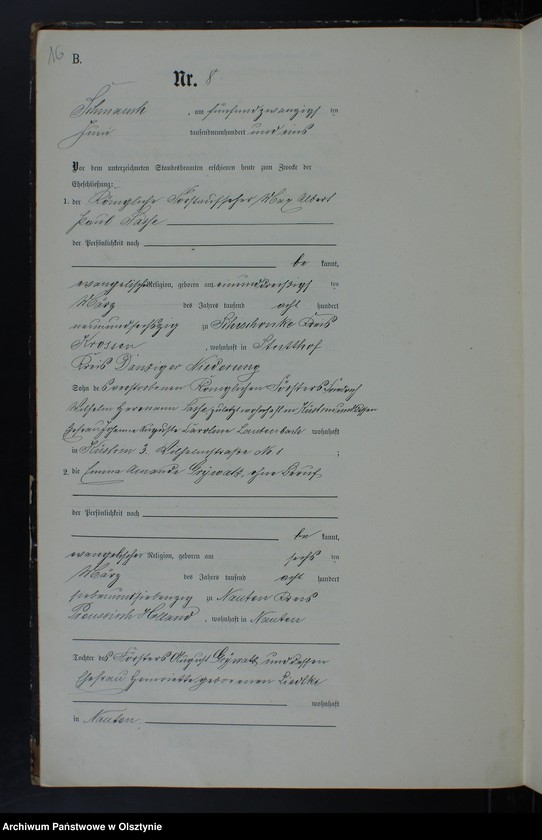 16
B.
Nr. 8
Schmauch, am fünfundzwanzigsten
Juni tausendneunhundert und eins
Vor dem unterzeichneten Standesbeamten erschienen heute zum Zwecke der
Eheschließung:
1. der Königliche Forstaufseher Max Albert
Paul
der Persönlichkeit nach
be kannt,
evangelischer Religion, geboren am einunddreißigsten
März des Jahres tausend acht hundert
neunundsechszig zu Kreis
Krossen, wohnhaft in Stutthof
Kreis Danziger Niederung
Sohn des verstorbenen Königlichen Försters Friedrich
Wilhelm Hermann zuletzt wohnhaft in Küstrin und dessen
Ehefrau Johanna Auguste Caroline Lautenbach wohnhaft
in Küstrin 3, Wilhelmstraße No 1 ;
2. die Emma Amanda ohne Beruf
der Persönlichkeit nach
be kannt,
evangelischer Religion, geboren am sechsten
März des Jahres tausend acht hundert
siebenundsiebenzig zu Nauten Kreis
Preussisch Holland, wohnhaft in Nauten
Tochter des Försters August und dessen
Ehefrau Henriette geborenen Liedtke
wohnhaft
in Nauten
Archiwum Państwowe w Olsztynie